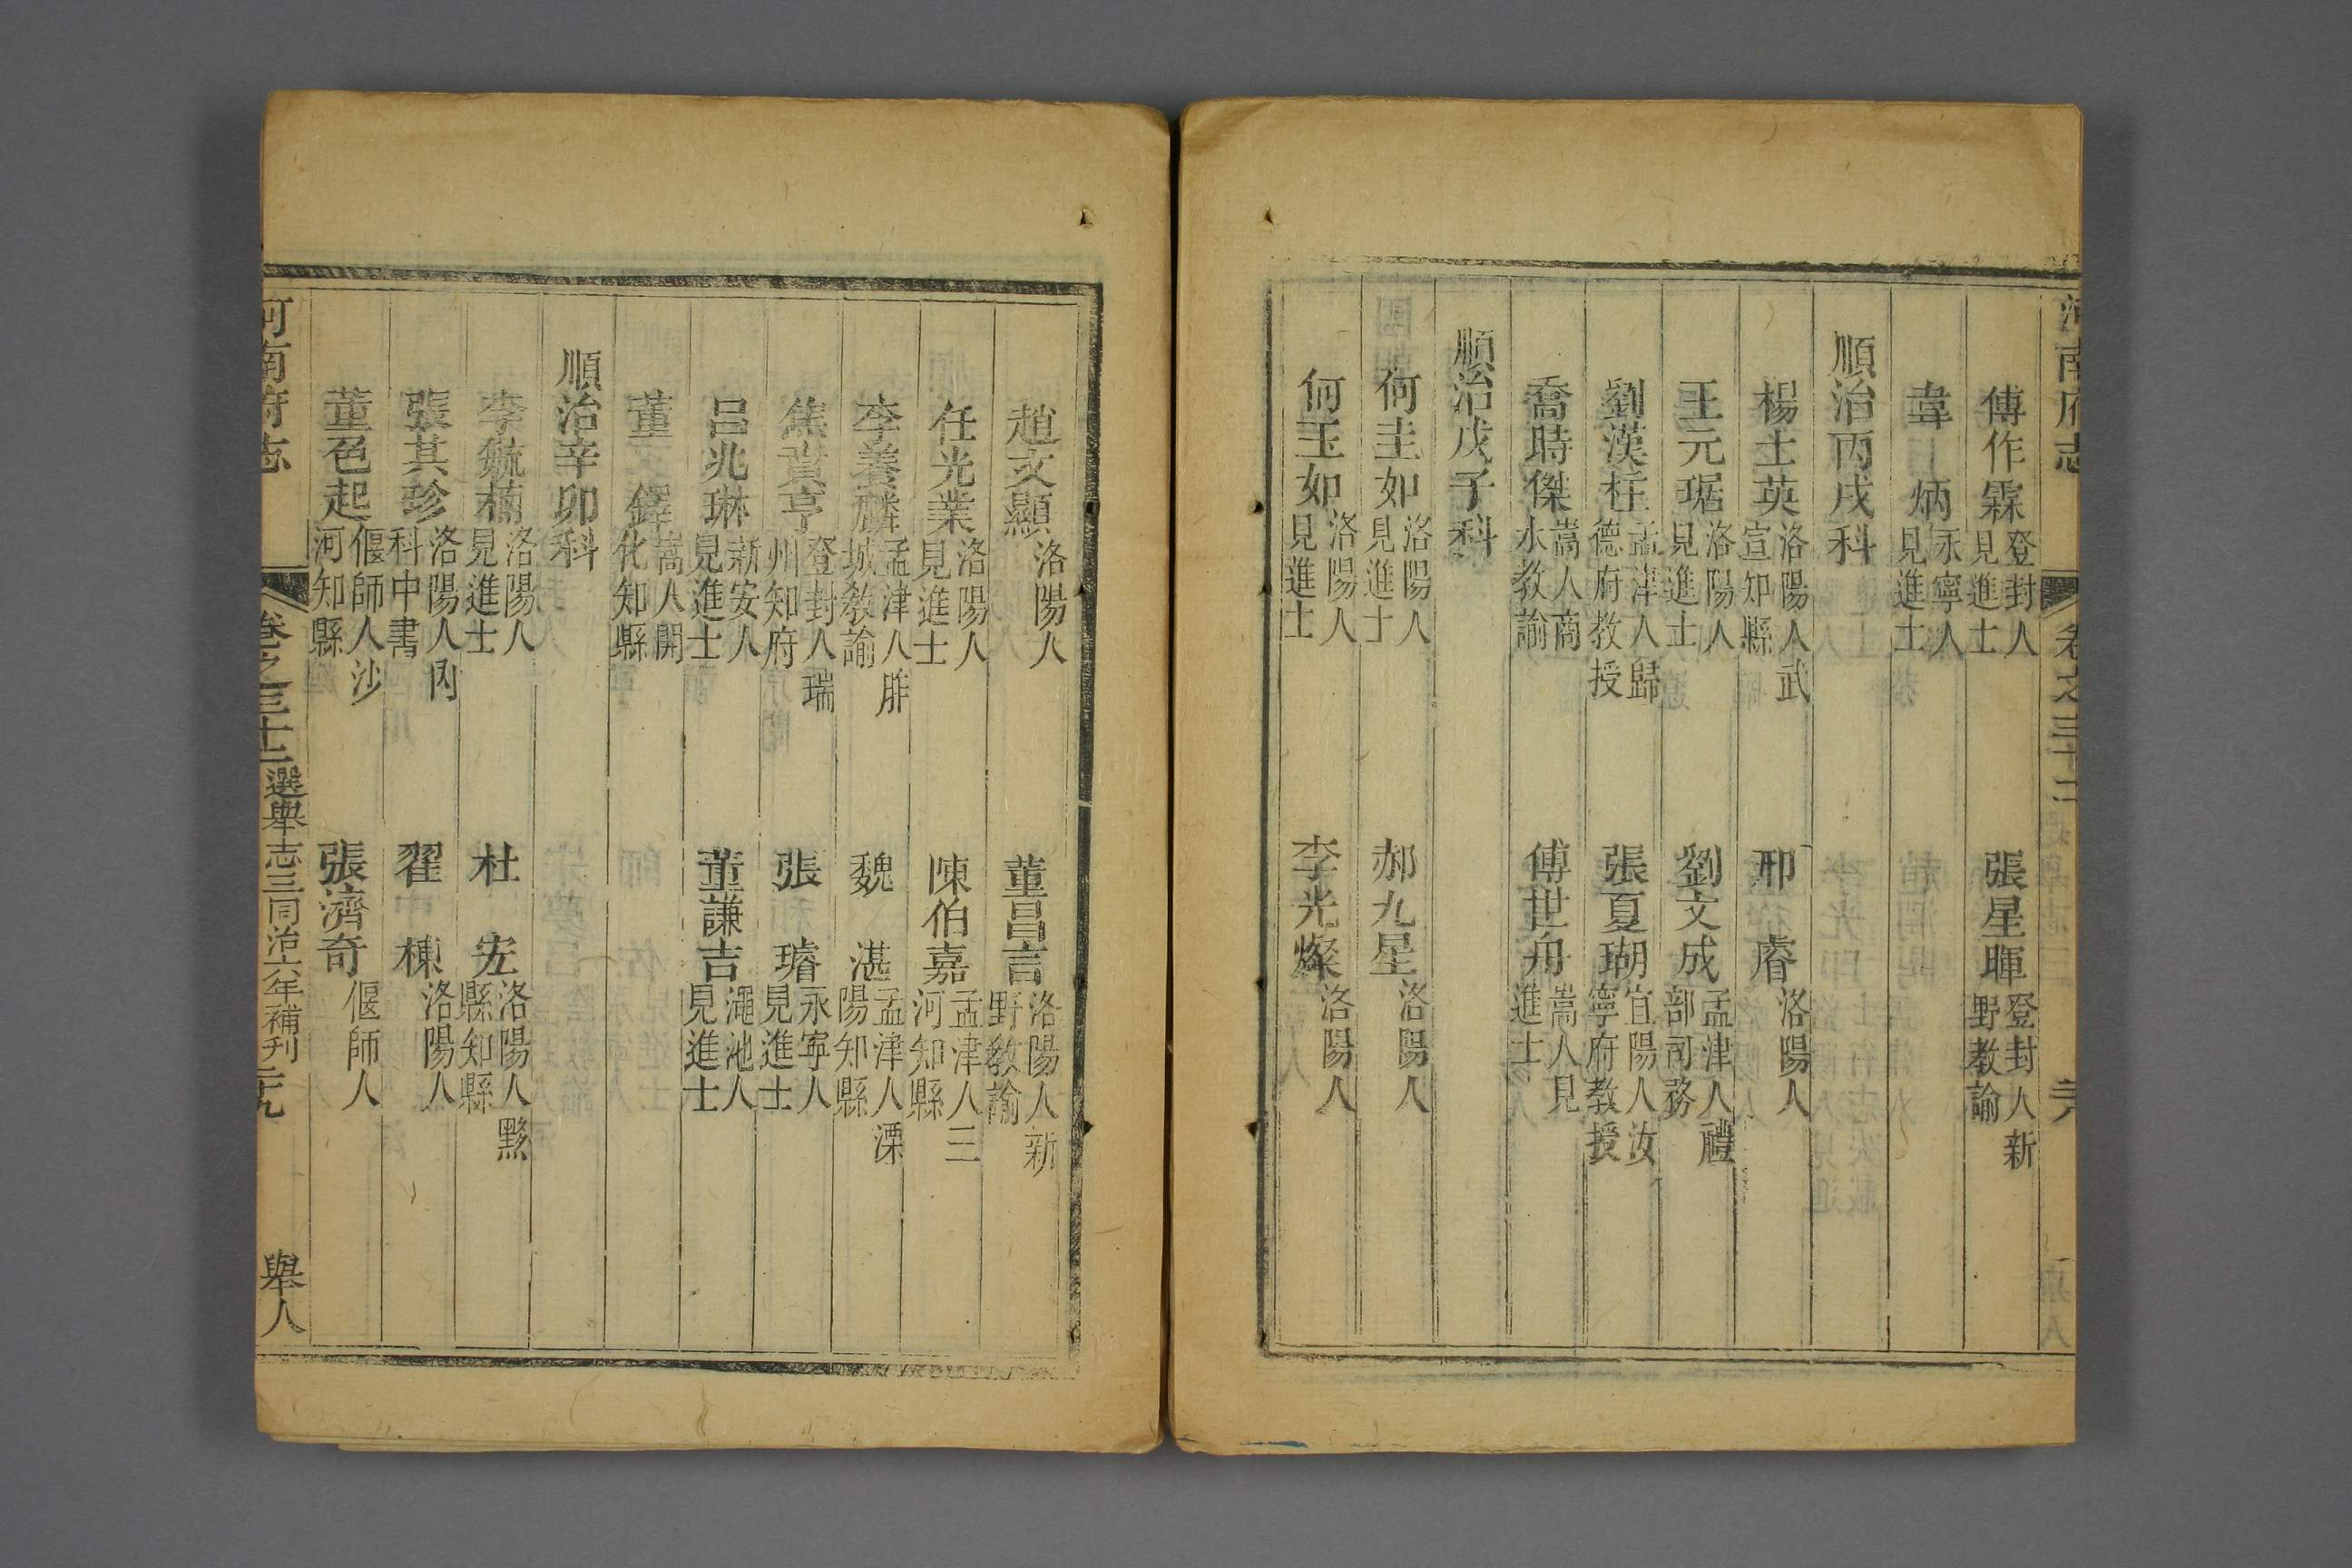 河南府志 卷之三十二 三十八
傅作霖 登封人見進士 張星暉 登封人新野教諭
韋炳 永寧人見進士
順治丙戌科
楊士英 洛陽人武宣知縣 邢睿 洛陽人
王元琚 洛陽人見進士 劉文成 孟津人禮部司務
劉漢柱 孟津人歸德府教授 張夏瑚 宜陽人汝寧府教授
喬時傑 嵩人商水教諭 傅世舟 嵩人見進士
順治戊子科
何圭如 洛陽人見進士 郝九星 洛陽人
何玉如 洛陽人見進士 李光燦 洛陽人
趙文顯 洛陽人 董昌言 洛陽人新野教諭
任光業 洛陽人見進士 陳伯嘉 孟津人三河知縣
李養麟 孟津人胙城教諭 魏湛 孟津人溧陽知縣
焦賁亨 登封人瑞州知府 張璿 永寧人見進士
呂兆琳 新安人見進士 董謙吉 澠池人見進士
董 鐸 嵩人開化知縣
順治辛卯科
李毓楠 洛陽人見進士 杜宏 洛陽人黟縣知縣
張其珍 洛陽人內科中書 翟棟 洛陽人
董色起 偃師人沙河知縣 張濟奇 偃師人
河南府志 卷之三十二 選舉志三同治六年補刊 三十九 舉人